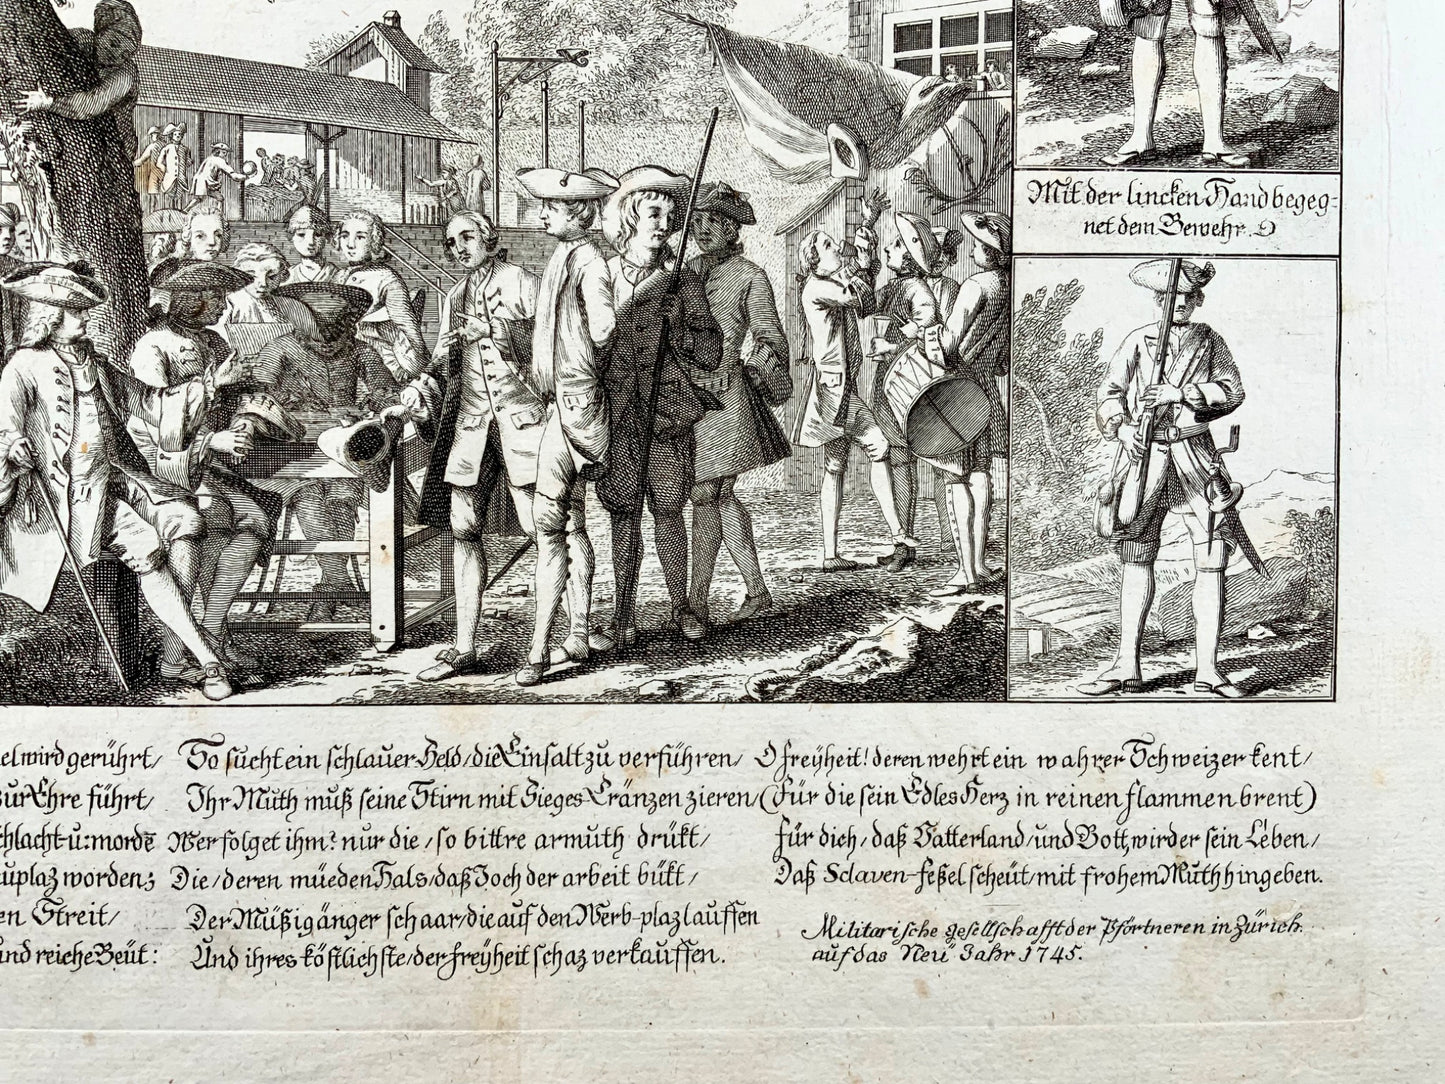 Mit der lincken Hand begeg=
net dem Gewehr. O
el wird gerührt/
zur Ehre führt/
schlacht-u: mordē
uplaz worden;
en Streit/
und reiche Beüt:
So sucht ein schlauer Held/ die Einfalt zu verführen/
Ihr Muth muß seine Stirn mit Sieges Cränzen zieren/
Wer folget ihm? nur die/ so bittre armuth drükt/
Die/ deren müeden Hals/ daß Joch der arbeit bükt/
Der Müßigänger schaar/ die auf den Werb-plaz lauffen
Und ihres köstlichste/ der freÿheit schaz verkauffen.
O freÿheit! deren wehrt ein wahrer Schweizer kent/
(Für die sein Edles Herz in reinen flammen brent)
Für dich/ daß Vatterland/ und Gott, wird er sein Leben/
Daß Sclaven-feßel scheüt/ mit frohem Muth hingeben.
Militarische gesellschafft der Pförtneren in Zürich.
auf das Neü Jahr 1745.